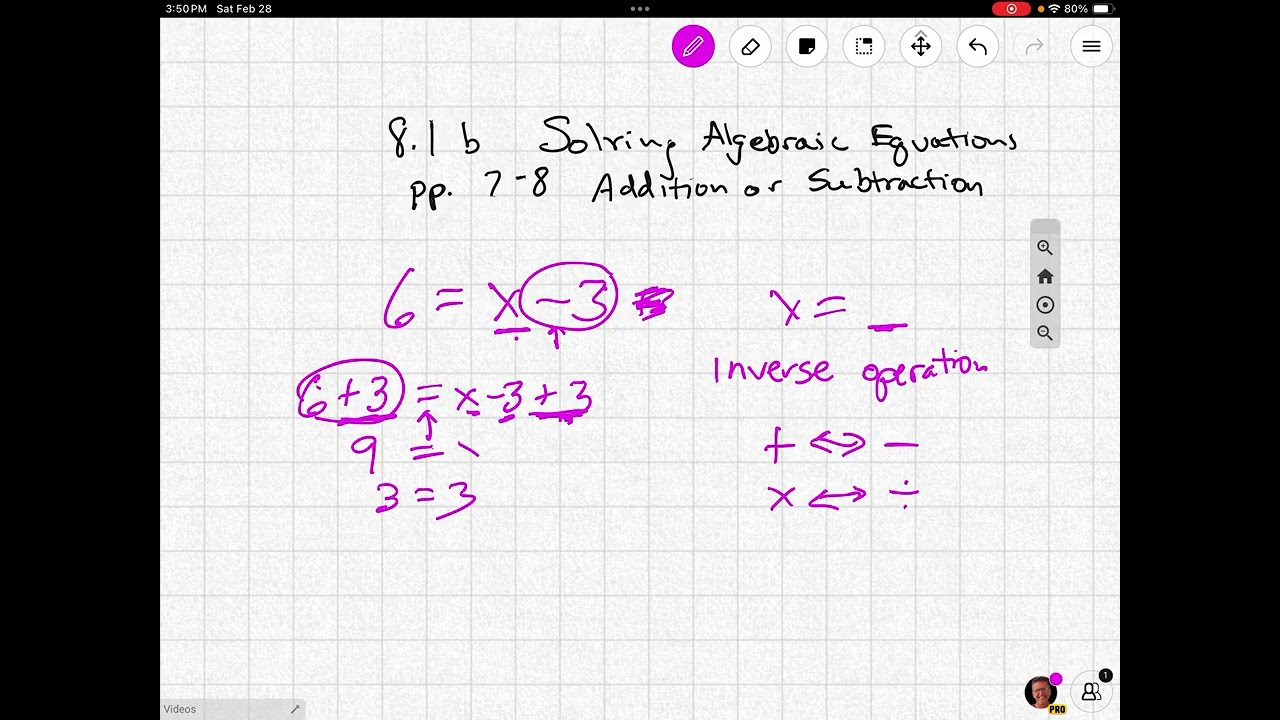 3:50 PM Sat Feb 28
80%
8.1 b Solving Algebraic Equations
pp. 7-8 Addition or Subtraction
6 = x - 3
x = _
Inverse operation
6 + 3 = x - 3 + 3
+ ↔ -
9 =
3 = 3
x ↔ ÷
Videos
1
PRO